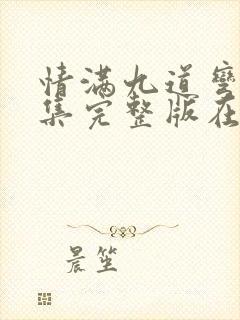 情满九道弯
集完整版在
晨笙